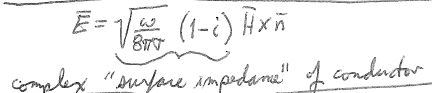 Ē = √(ω/8πσ) (1-i) H̄ × n̄
complex "surface impedance" of conductor